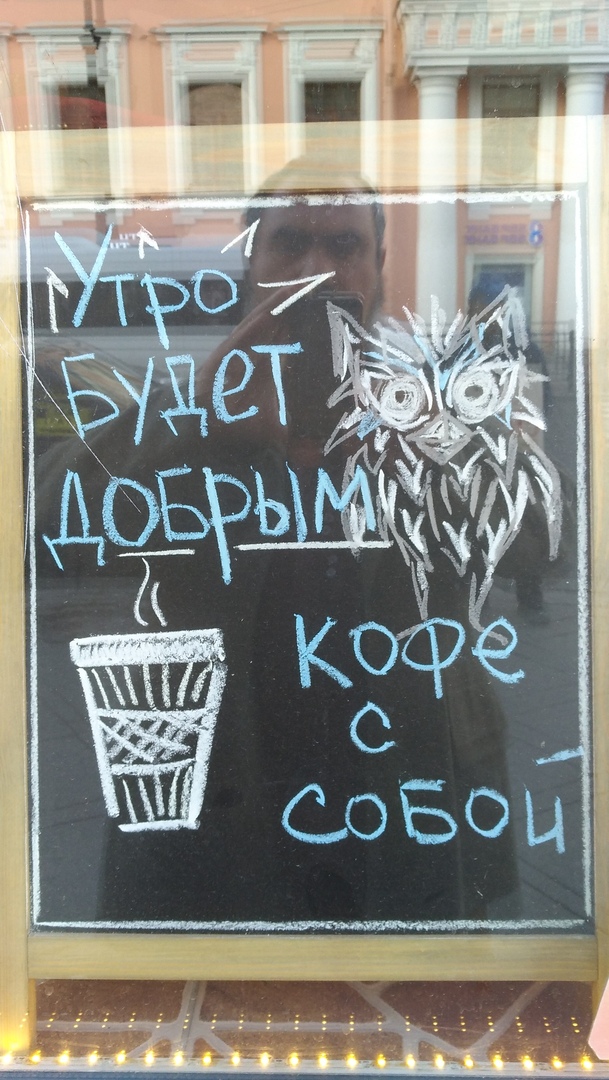 Утро
Будет
добрым
кофе
с
собой